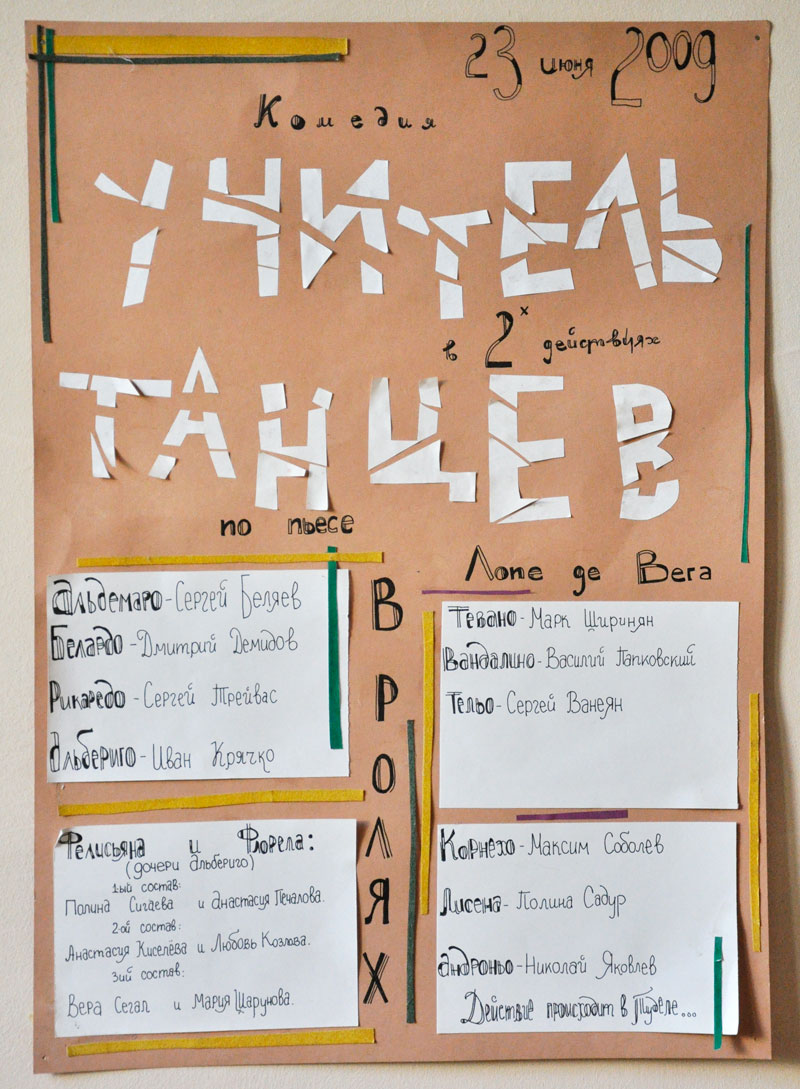 23 июня 2009
Комедия
УЧИТЕЛЬ
в 2х действиях
ТАНЦЕВ
по пьесе
Лопе де Вега
В РОЛЯХ
Альдемаро - Сергей Беляев
Белардо - Дмитрий Демидов
Рикаредо - Сергей Трейвас
Альбериго - Иван Крячко
Фелисьяна и Флорела:
(дочери Альбериго)
1ый состав:
Полина Сигаева и Анастасия Печалова.
2-ой состав:
Анастасия Киселёва и Любовь Козлова.
3ий состав:
Вера Сегал и Мария Шарунова.
Тевано - Марк Ширинян
Вандалино - Василий Папковский
Тельо - Сергей Ванеян
Корнехо - Максим Соболев
Лисена - Полина Садур
Андроньо - Николай Яковлев
Действие происходит в Туделе...